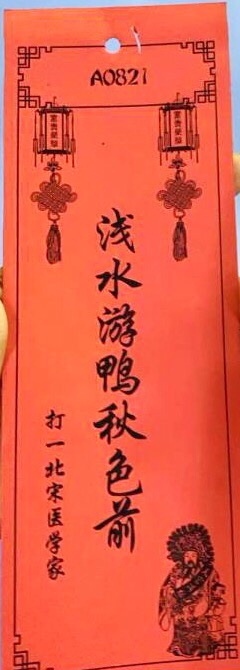 A0821
浅水游鸭秋色前
打一北宋医学家